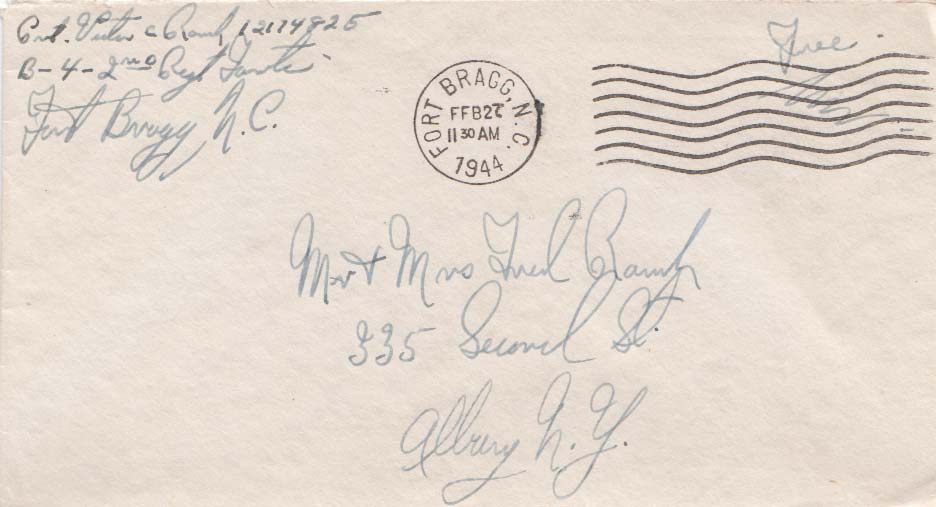 Pvt. Victor C 12174825
B-4-2nd Regt
Fort Bragg N.C.
Free
FORT BRAGG, N.C.
FEB 2
11 30 AM
1944
Mr + Mrs Fred
335 Second St.
Albany N.Y.